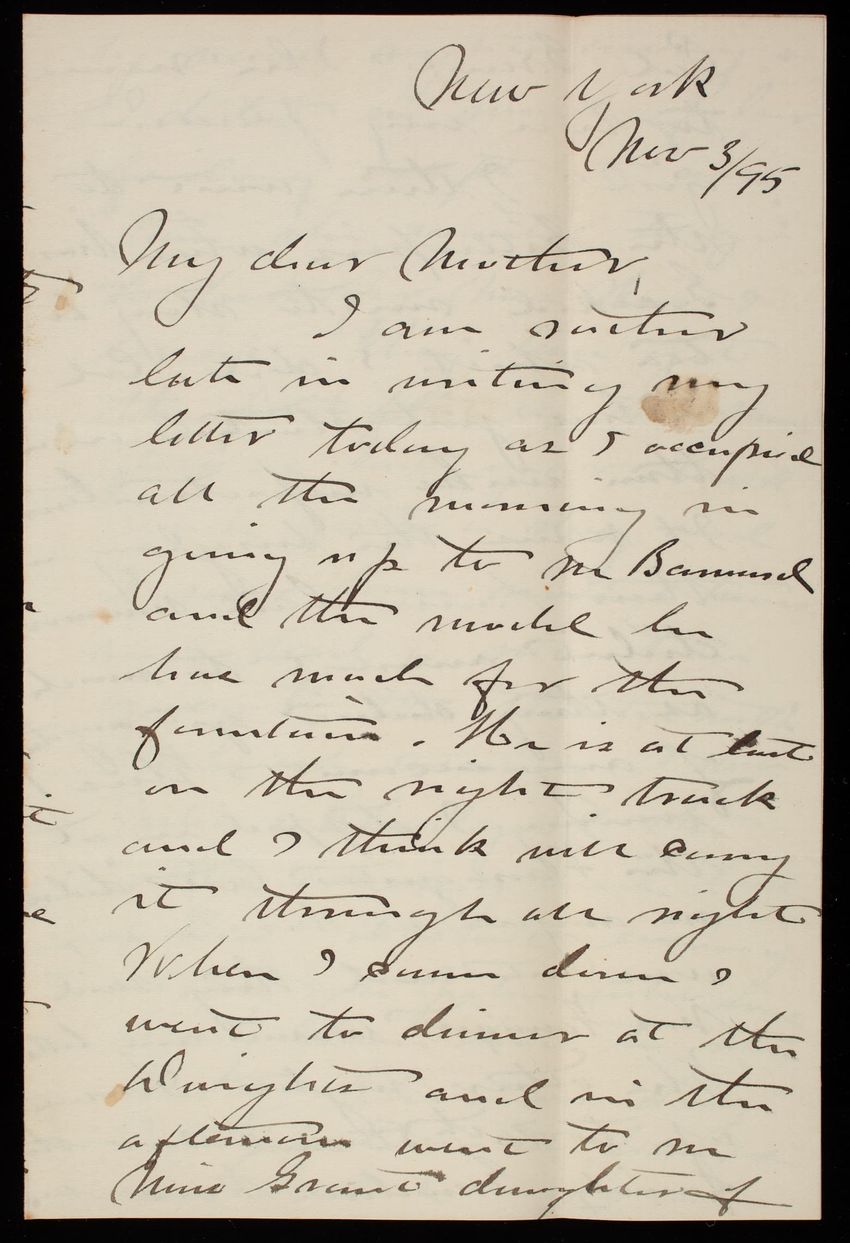 New York
Nov 3/95
My dear Mother,
I am rather
late in writing my
letter today as I occupied
all the morning in
going up to see Barnard
and the model he
has made for the
fountain. He is at last
on the right track
and I think will carry
it through all right
When I came down I
went to dinner at the
Wrights and in the
afternoon went to see
Miss Grant daughter of